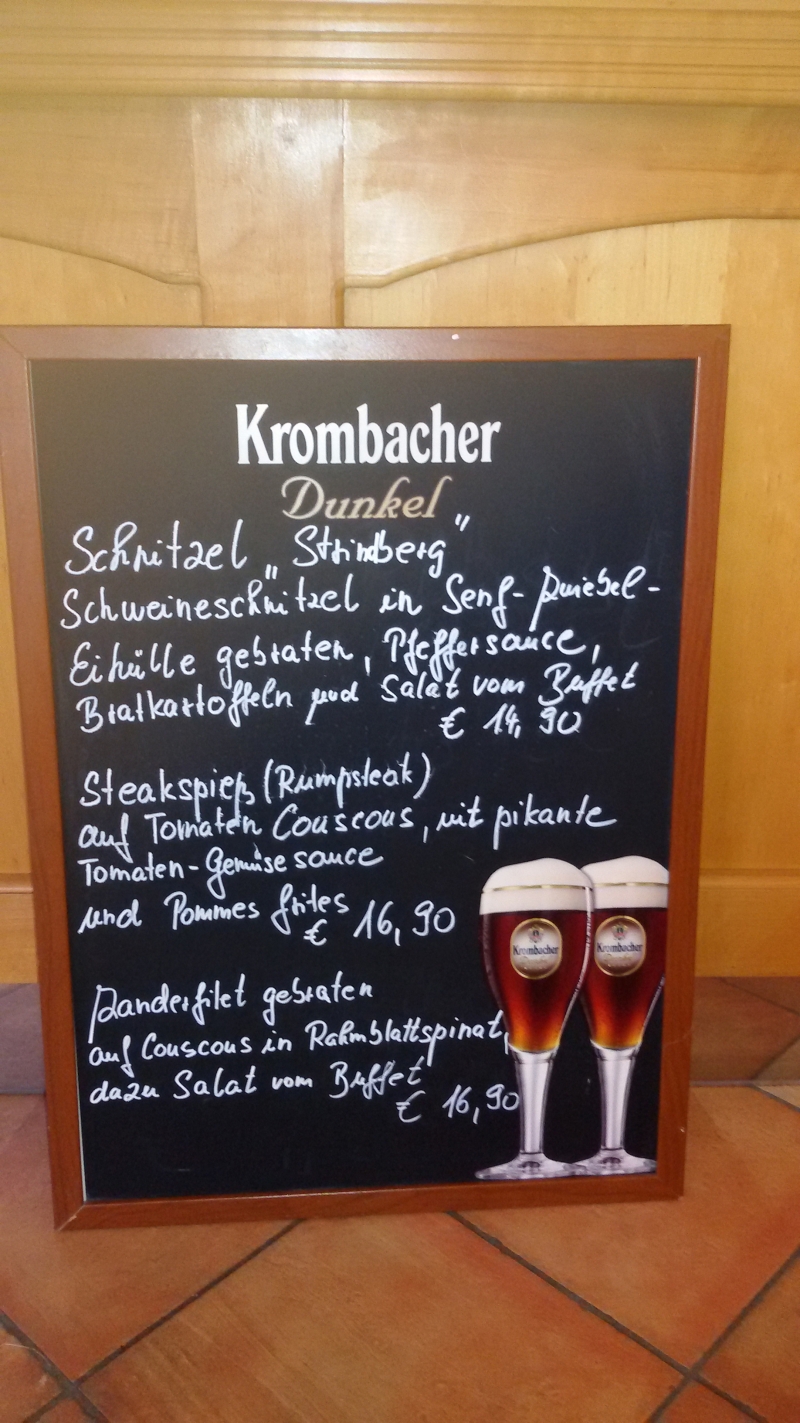 Krombacher
Dunkel
Schnitzel „Strindberg"
Schweineschnitzel in Senf-Zwiebel-
Eihülle gebraten, Pfeffersauce,
Bratkartoffeln und Salat vom Buffet
€ 14,90
Steakspieß (Rumpsteak)
auf Tomaten Couscous, mit pikante
Tomaten-Gemüsesauce
und Pommes frites
€ 16,90
Zanderfilet gebraten
auf Couscous in Rahmblattspinat,
dazu Salat vom Buffet
€ 16,90
Krombacher
Krombacher